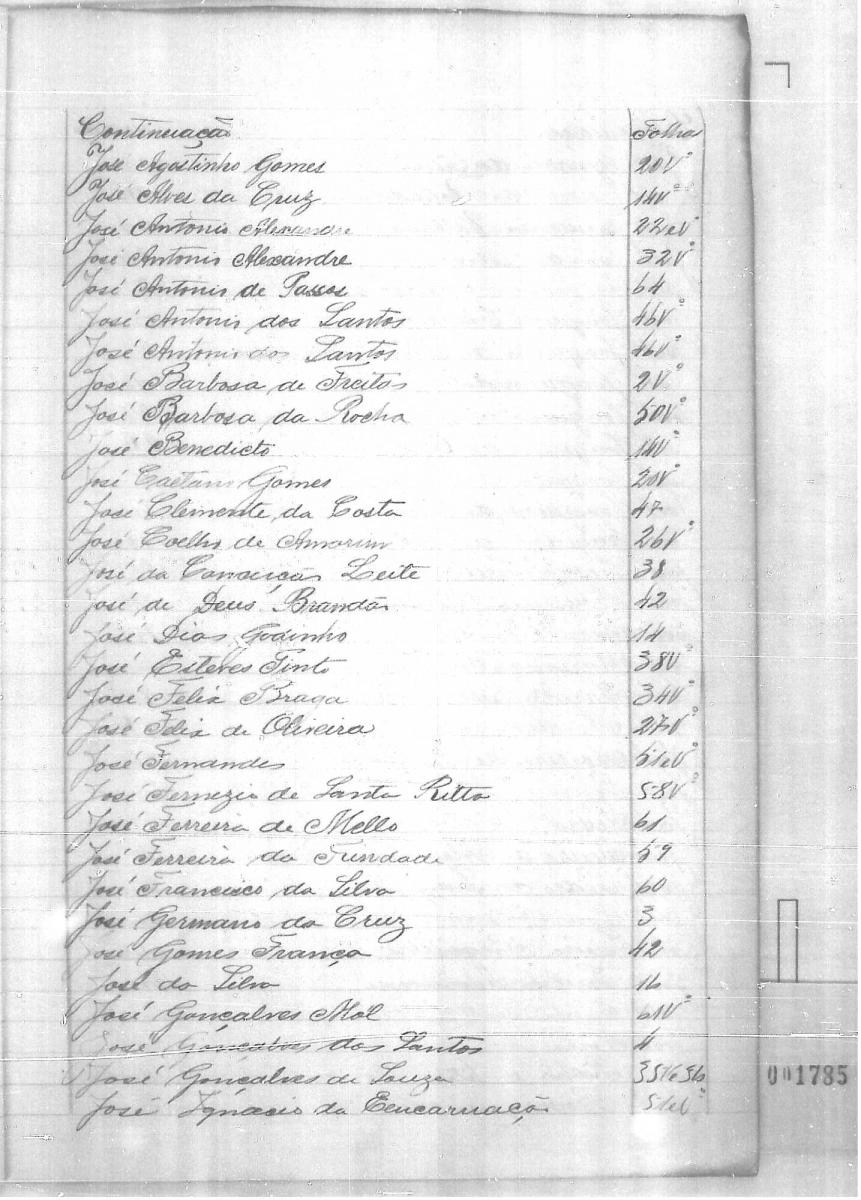 Continuação Folhas
José Agostinho Gomes 20Vº
José Alves da Cruz 14Vº
José Antonio Alexandre 22eVº
José Antonio Alexandre 32Vº
José Antonio de Passos 64
José Antonio dos Santos 46Vº
José Antonio dos Santos 46Vº
José Barbosa de Freitas 2Vº
José Barbosa da Rocha 50Vº
José Benedicto 14Vº
José Caetano Gomes 20Vº
José Clemente da Costa 47
José Coelho de Amorim 26Vº
José da Conceição Leite 38
José de Deus Brandão 42
José Dias Godinho 14
José Esteves Pinto 38Vº
José Felix Braga 34Vº
José Felix de Oliveira 27Vº
José Fernandes 51eVº
José de Santa Ritta 58Vº
José Ferreira de Mello 61
José Ferreira da 59
José Francisco da Silva 60
José Germano da Cruz 3
José Gomes França 42
José da Silva 16
José Gonçalves Mól 61Vº
José Gonçalves dos Santos 4
José Gonçalves de Souza
José Ignacio da Eencarnação 51eVº
001785